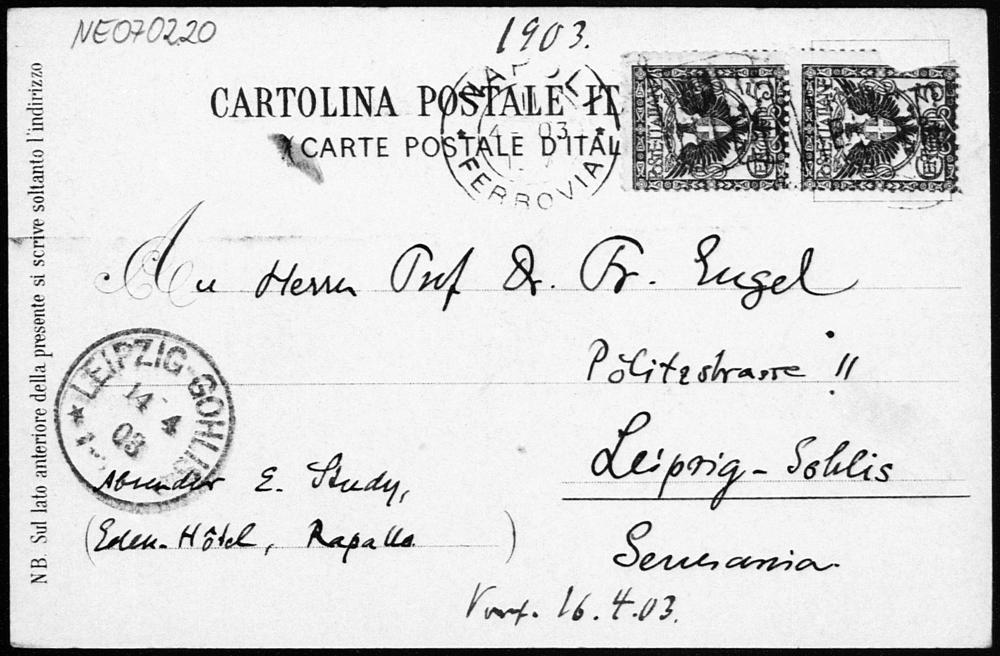 NE070220
1903.
CARTOLINA POSTALE IT
(CARTE POSTALE D'ITAL
NAPOLI
4- 03
FERROVIA
POSTE ITALIANE
POSTE ITALIANE
NB. Sul lato anteriore della presente si scrive soltanto l'indirizzo
An Herrn Prof Dr. Fr. Engel
Pölitzstrasse 11
LEIPZIG-GOHLIS
14 4
03
Leipzig-Gohlis
Absender E. Study,
(Eden-Hôtel, Rapallo)
Germania.
16.4.03.